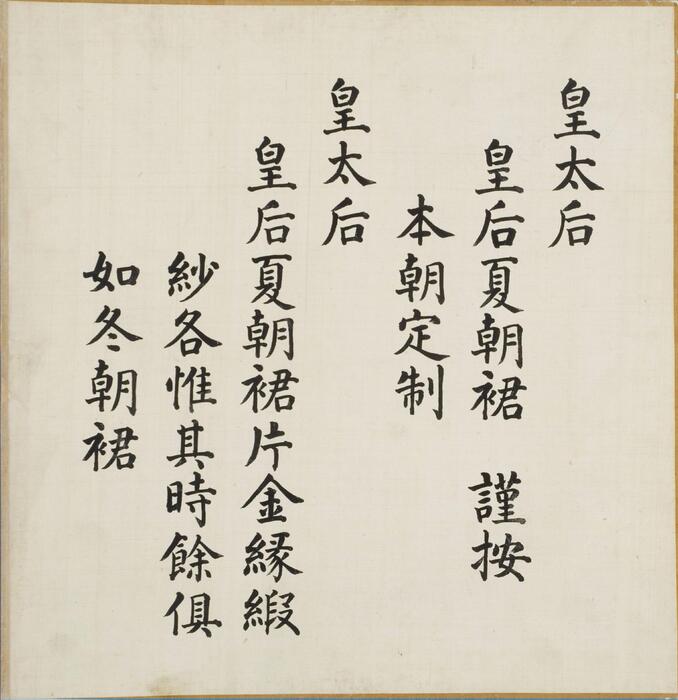 皇太后
皇后夏朝裙 謹按
本朝定制
皇太后
皇后夏朝裙片金緣緞
紗各惟其時餘俱
如冬朝裙